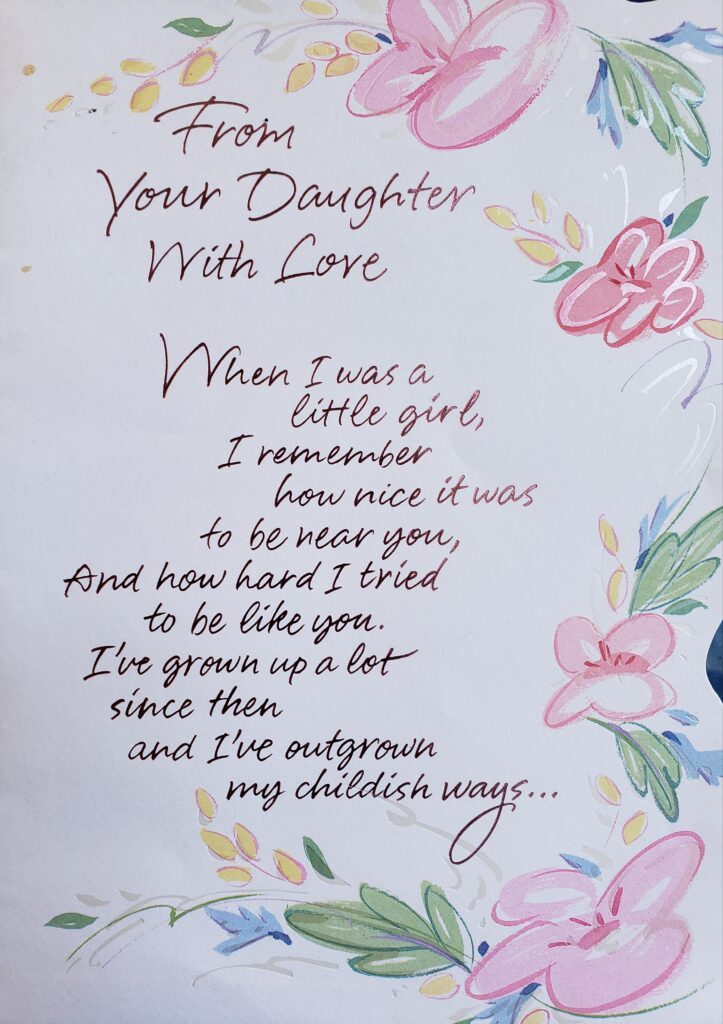 From
Your Daughter
With Love
When I was a
little girl,
I remember
how nice it was
to be near you,
And how hard I tried
to be like you.
I've grown up a lot
since then
and I've outgrown
my childish ways...